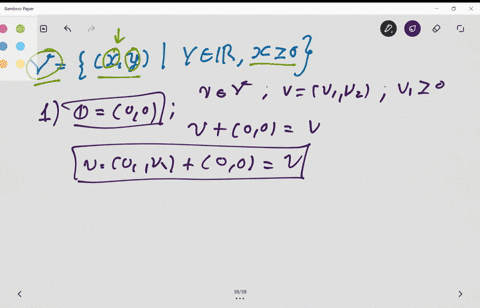 Bamboo Paper
V = { (x, y) | Y ∈ ℝ, x ≥ 0 }
1) 0 = (0,0) ; v ∈ V ; v = (v₁, v₂) ; v₁ ≥ 0
v + (0,0) = v
v = (v₁, v₂) + (0,0) = v
38/38